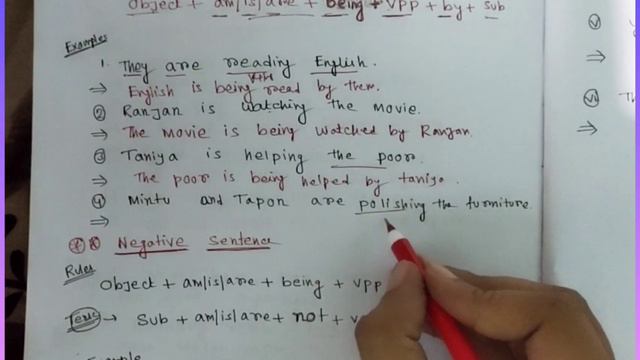 Object + am/is/are + being + VPP + by + Sub
Examples
1. They are reading English.
⇒ English is being read by them.
② Ranjan is watching the movie.
⇒ The movie is being watched by Ranjan.
③ Taniya is helping the poor.
⇒ The poor is being helped by taniya.
④ Mintu and Tapon are polishing the furniture
⇒
Negative Sentence
Rules
Object + am/is/are + being + VPP
→ Sub + am/is/are + not + v
Example
ⓥ
⇒
ⓥⓘ Th
⇒